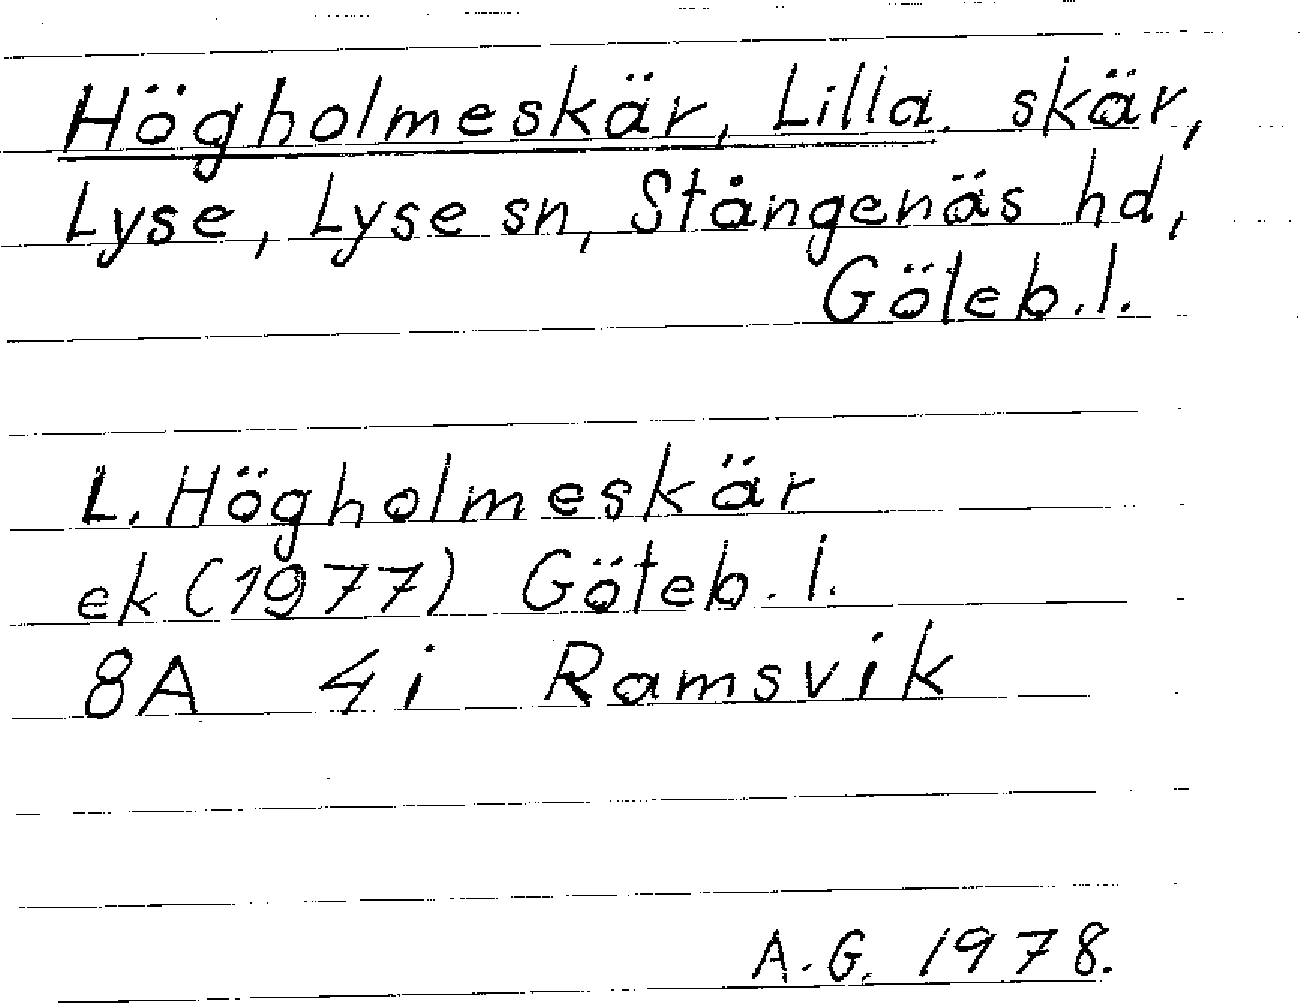 Högholmeskär, Lilla, skär,
Lyse, Lyse sn, Stångenäs hd,
Göteb.l.
L. Högholmeskär
ek (1977) Göteb. l.
8A 4i Ramsvik
A.G. 1978.